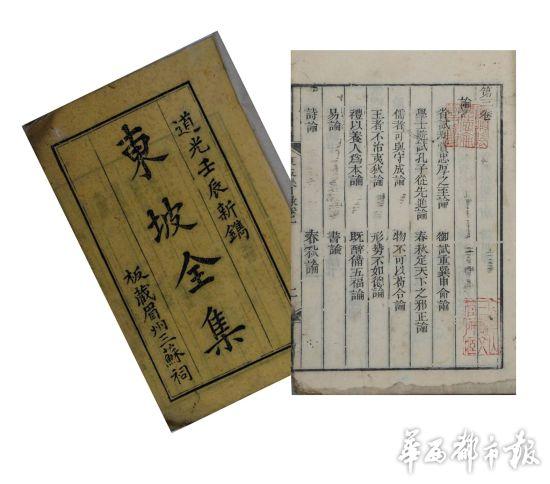 道光壬辰新鐫
東坡全集
板藏眉州三蘇祠
第三卷
論
省試刑賞忠厚之至論 御試重巽申命論
學士院試孔子從先進論 春秋定天下之邪正論
儒者可與守成論 物不可以苟合論
王者不治夷狄論 形勢不如德論
禮以養人爲本論 既醉備五福論
易論 書論
詩論 春秋論
華西都市報